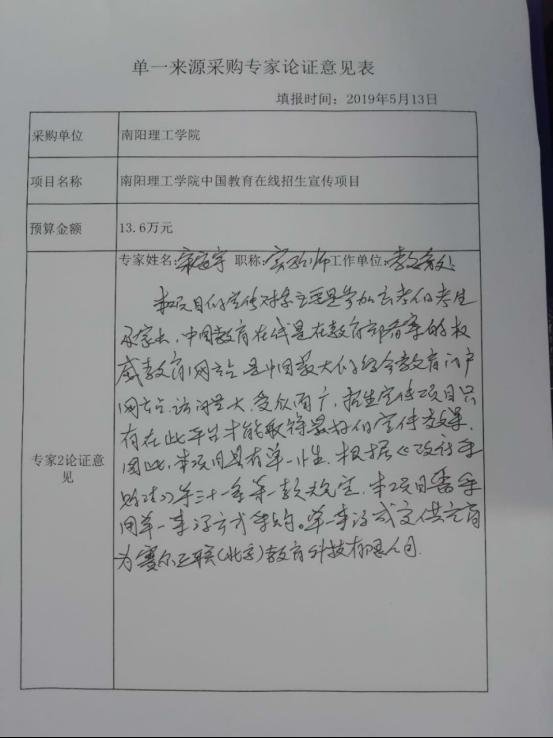 单一来源采购专家论证意见表
填报时间：2019年5月13日
采购单位 南阳理工学院
项目名称 南阳理工学院中国教育在线招生宣传项目
预算金额 13.6万元
专家姓名: 职称:实验师工作单位:教务处
本项目的宣传对象主要是参加高考的考生
及家长，中国教育在线是在教育部备案的权
威教育网站，是中国最大的综合教育门户
网站，访问量大，受众面广，招生宣传项目只
有在此平台才能取得最好的宣传效果，
专家2论证意见
因此，本项目具有单一性。根据《政府采
购法》第三十一条第一款规定，本项目需采
用单一来源方式采购。单一来源成交供应商
为赛尔互联(北京)教育科技有限公司